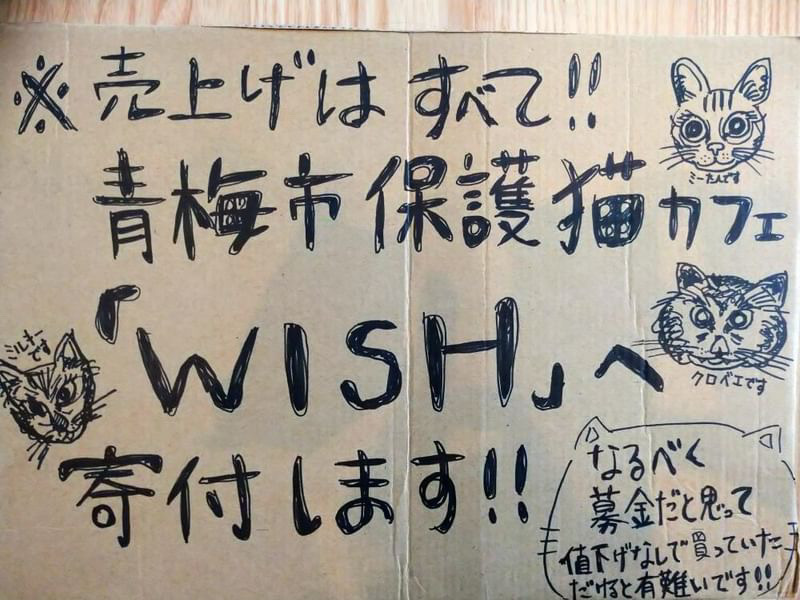 ※売上げはすべて!!
ミーたんです
青梅市保護猫カフェ
「WISH」へ
ミルキー
です
クロベエです
寄付します!!
なるべく
募金だと思って
値下げなしで買っていた
だけると有難いです!!